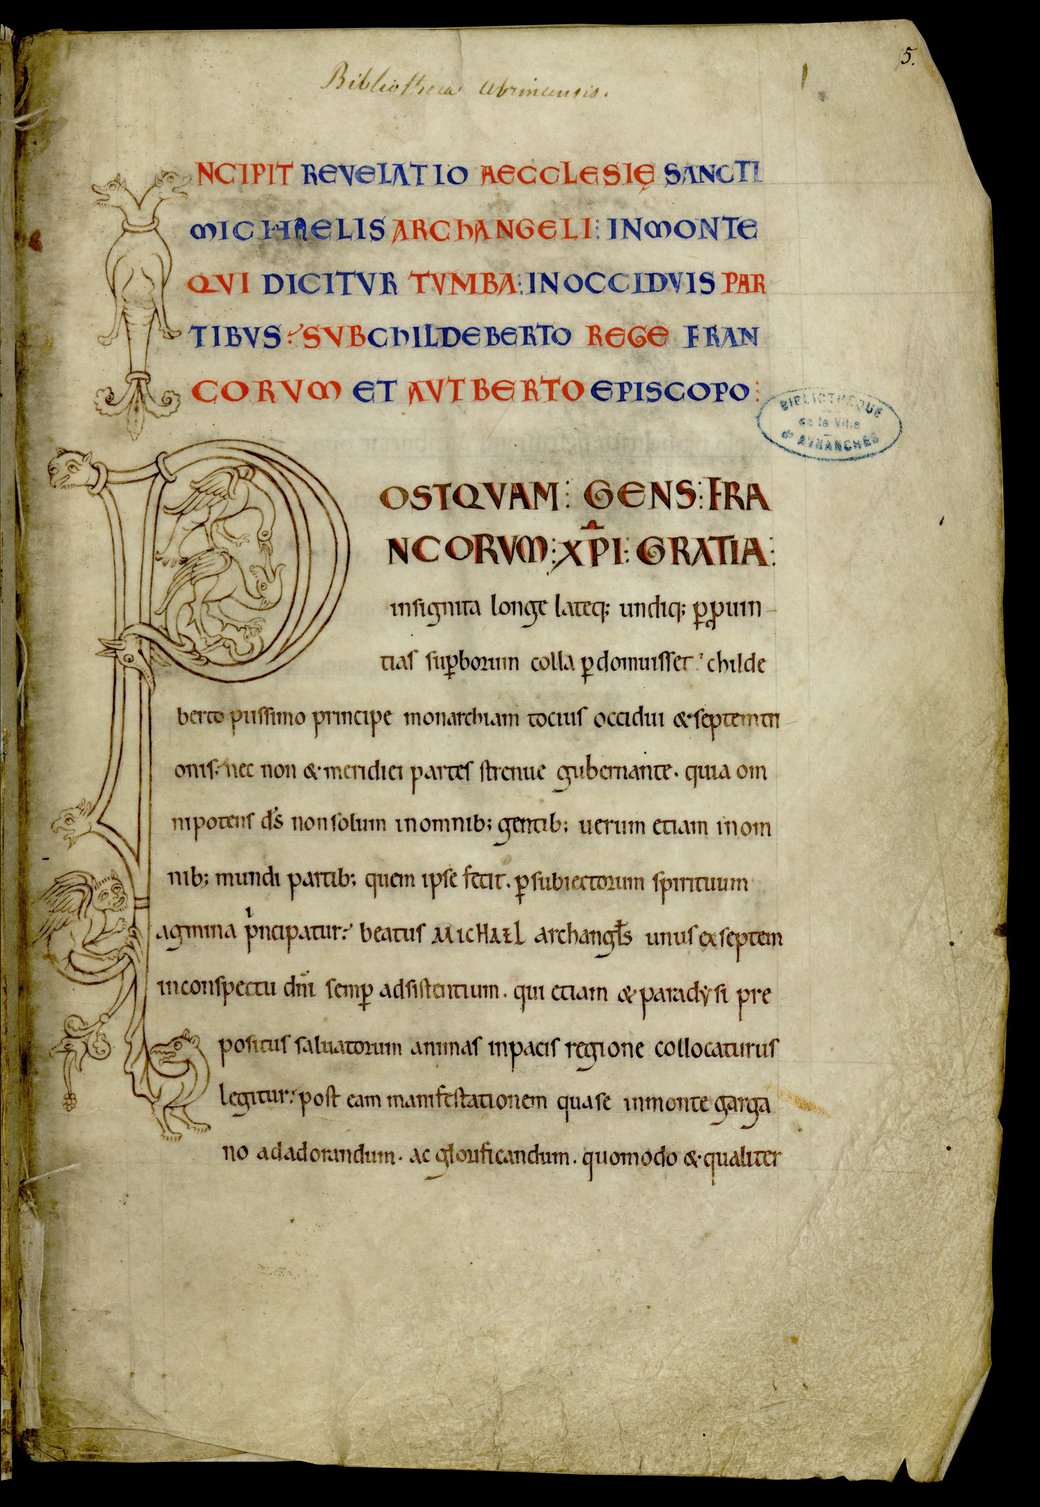 5.
Bibliotheca Abrincensis.
INCIPIT REVELATIO AECCLESIĘ SANCTI
MICHAELIS ARCHANGELI: INMONTE
QVI DICITVR TVMBA: INOCCIDVIS PAR
TIBVS: SVBCHILDEBERTO REGE FRAN
CORVM ET AVTBERTO EPISCOPO:
BIBLIOTHÈQUE
de la Ville
d'AVRANCHES
POSTQVAM: GENS: FRA
NCORVM: XP̅I: GRATIA:
insignita longe lateq; undiq; ꝑꝓuin
tias suꝑborum colla ꝑdomuisset: childe
berto piissimo principe monarchiam tocius occidui & septemtri
onis: nec non & meridiei partes strenue gubernante. quia om
nipotens d̅s non solum inomnib; gentib; uerum etiam inom
nib; mundi partib; quem ipse fecit. ꝑsubiectorum spirituum
agmina p'ncipatur: beatus MICHAEL archangl̅s unus exseptem
inconspectu dn̅i semꝑ adsistentium. qui etiam & paradysi pre
positus saluatorum animas inpacis regione collocaturus
legitur: post eam manifestationem quase inmonte garga
no adadorandum. ac glorificandum. quomodo & qualiter